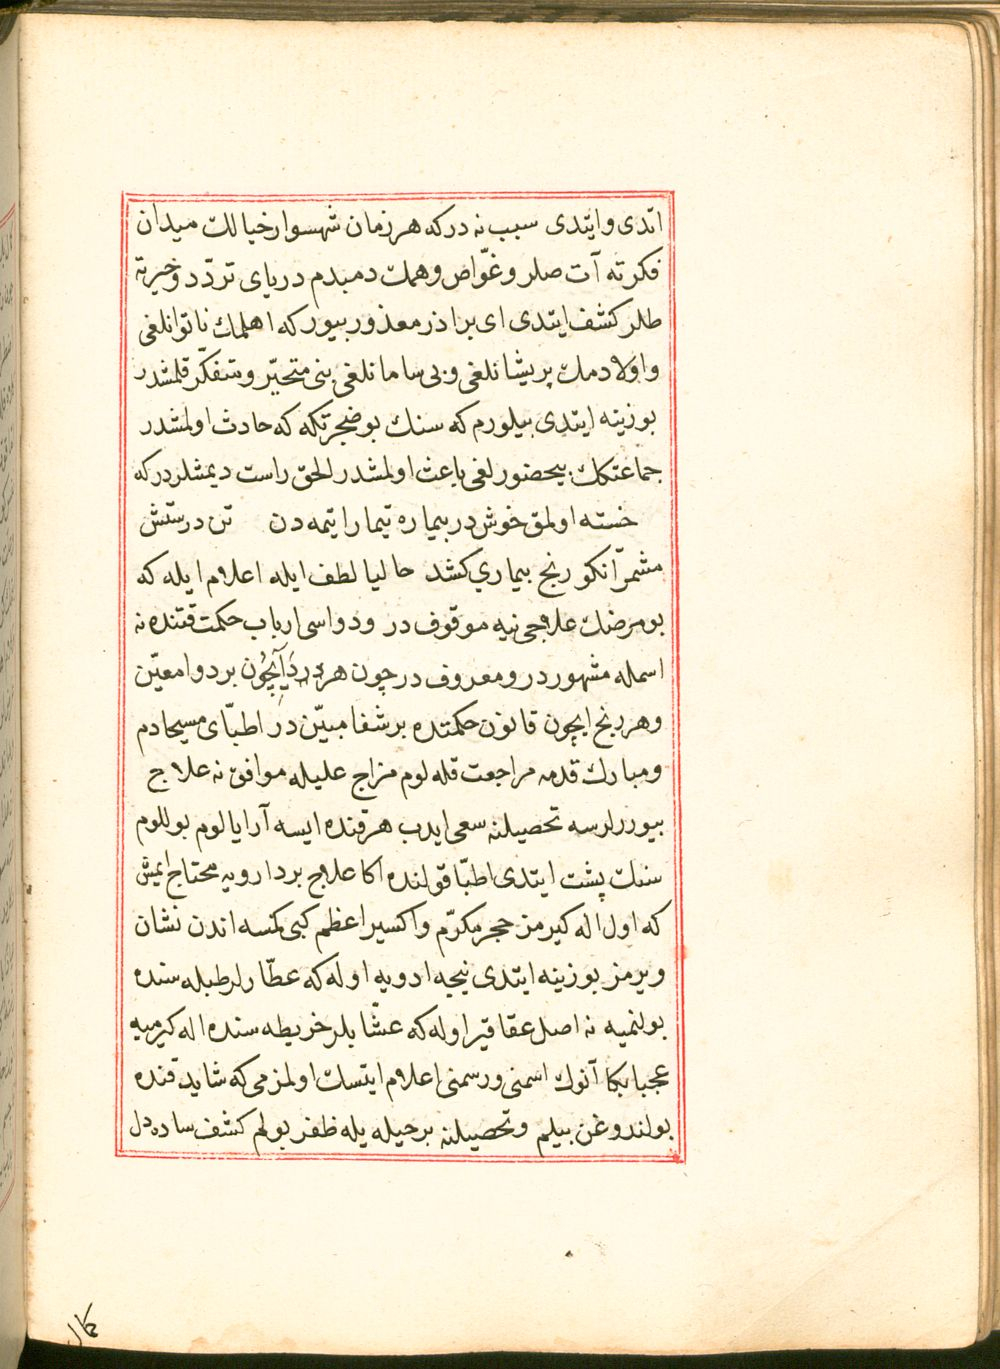 اتدی و ایتدی سبب نه در که هر زمان شهسوار خیالك میدان
فکرته آت صلر و غوّاص وهمك دمبدم دریای تردّد و حیرته
طلر کشف ایتدی ای برادر معذور بیور که اهلمك ناتوانلغی
و اولادمك پریشانلغی و بی سامانلغی بنی متحیّر و متفکّر قلمشدر
بوزینه ایتدی بیلورم که سنك بو ضجرتکه که حادث اولمشدر
جماعتکك بیحضورلغی باعث اولمشدر الحق راست دیمشلردر که
خسته اولمق خوش در بیماره تیمار ایتمه دن تن درستش
مشمر آنکو رنج بیماری کشد حالیا لطف ایله اعلام ایله که
بو مرضك علاجی نیه موقوف در و دواسی ارباب حکمت قتنده نه
اسمله مشهور در و معروف در چون هر درد ایچون بر دوا معیّن
و هر رنج ایچون قانون حکمتده بر شفا مبیّن در اطبّای مسیحا دم
و مبارك قدمه مراجعت قله لوم مزاج علیله موافق نه علاج
بیوررلرسه تحصیلنه سعی ایدب هر قنده ایسه آرایالوم بوللوم
سنك پشت ایتدی اطبّا قولنده اکا علاج بر دارویه محتاج ایمش
که اول اله کیرمز حجر مکرّم و اکسیر اعظم کبی کمسه اندن نشان
ویرمز بوزینه ایتدی نیجه ادویه اوله که عطّارلر طبله سنده
بولنمیه نه اصل عقاقیر اوله که عشّابلر خریطه سنده اله کیرمیه
عجبا بکا آنوك اسمنی و رسمنی اعلام ایتسك اولمزمی که شاید قنده
بولندوغن بیلم و تحصیلنه بر حیله یله ظفر بولم کشف ساده دل